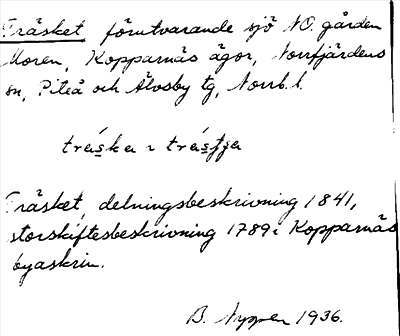 Träsket förutvarande sjö NO. gården
Moren, Kopparnäs ägor, Norrfjärdens
sn, Piteå och Älvsby tg, Norrb. l.
träska ~ träsḱa
Träsket, delningsbeskrivning 1841,
storskiftesbeskrivning 1789 i Kopparnäs
byaskrin.
B. Nyppen 1936.